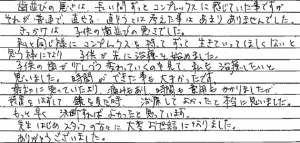 歯並びの悪さは、長い間ずっとコンプレックスに感じていた事ですが
それが普通で、直せる・直そうとは考えた事はあまりありませんでした。
きっかけは、子供の歯並びの悪さでした。
私と同じ様にコンプレックスを持ってずっと生きていってほしくないと
思う様になり、子供が先に治療を始めました。
子供の歯が少しづつ変わっていくのを見て、私も治療したいと
思いました。時間ができた事も大きかったです。
最初に思っていたより、痛みもあり、時間も費用もかかりましたが
装置をはずして、鏡を見た時、治療してよかったと本当に思いました。
もっと早く決断すればよかったと思っています。
先生はじめスタッフの方々に大変お世話になりました。
ありがとうございました。